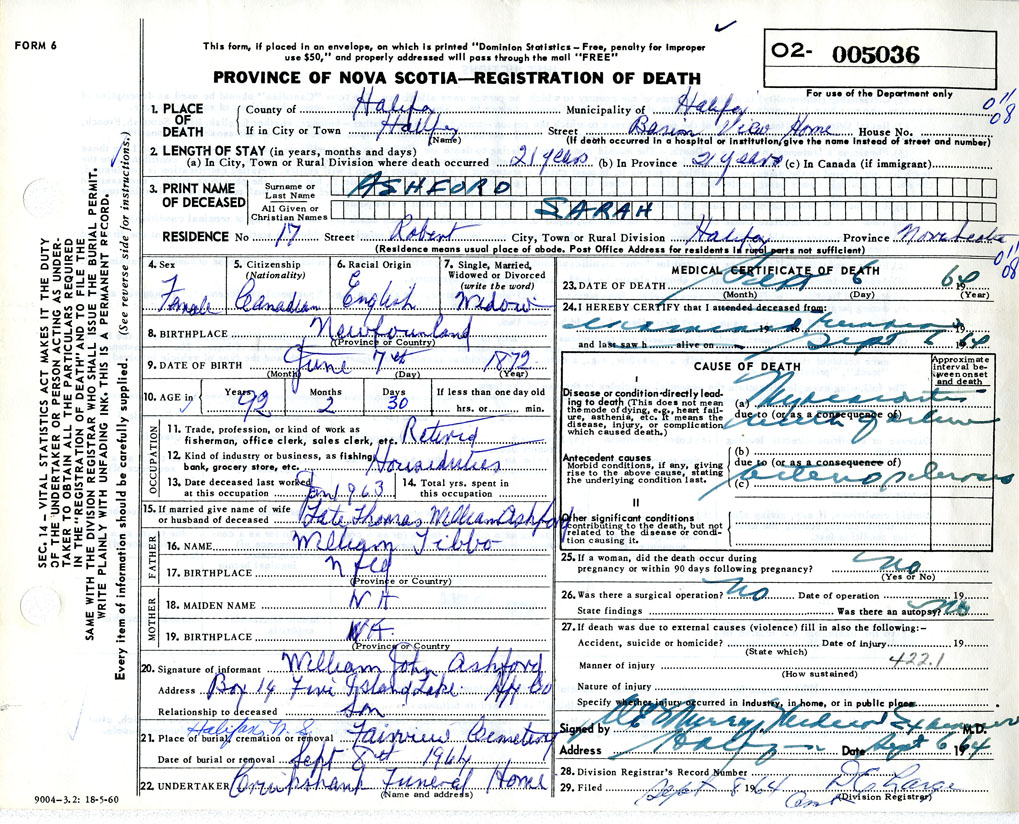 FORM 6
This form, if placed in an envelope, on which is printed "Dominion Statistics – Free, penalty for improper
use $50," and properly addressed will pass through the mail "FREE"
PROVINCE OF NOVA SCOTIA—REGISTRATION OF DEATH
02- 005036
For use of the Department only
011
08
1. PLACE OF DEATH
County of Halifax Municipality of Halifax
If in City or Town Halifax Street Basin View Home House No.
(Name) (If death occurred in a hospital or institution, give the name instead of street and number)
2. LENGTH OF STAY (in years, months and days)
(a) In City, Town or Rural Division where death occurred 21 years (b) In Province 21 years (c) In Canada (if immigrant)
3. PRINT NAME OF DECEASED
Surname or Last Name ASHFORD
All Given or Christian Names SARAH
RESIDENCE No 17 Street Robert City, Town or Rural Division Halifax Province Nova Scotia
(Residence means usual place of abode. Post Office Address for residents in rural parts not sufficient)
011
08
4. Sex Female
5. Citizenship (Nationality) Canadian
6. Racial Origin English
7. Single, Married, Widowed or Divorced (write the word) Widow
8. BIRTHPLACE Newfounland
(Province or Country)
9. DATE OF BIRTH June 7th 1872
(Month) (Day) (Year)
10. AGE in Years 92 Months 2 Days 30 If less than one day old hrs. or min.
OCCUPATION
11. Trade, profession, or kind of work as fisherman, office clerk, sales clerk, etc. Retired
12. Kind of industry or business, as fishing, bank, grocery store, etc. Houseduties
13. Date deceased last worked at this occupation Jan 1963
14. Total yrs. spent in this occupation
15. If married give name of wife or husband of deceased Late Thomas William Ashford
FATHER
16. NAME William Tibbo
17. BIRTHPLACE Nfld
(Province or Country)
MOTHER
18. MAIDEN NAME NA
19. BIRTHPLACE NA
(Province or Country)
20. Signature of informant William John Ashford
Address Box 14 Five Island Lake Hfx Co
Relationship to deceased son
Halifax N.S.
21. Place of burial, cremation or removal Fairview Cemetery
Date of burial or removal Sept 8th 1964
22. UNDERTAKER Cruikshank Funeral Home
(Name and address)
9004–3.2: 18-5-60
MEDICAL CERTIFICATE OF DEATH
23. DATE OF DEATH Sept 6 1964
(Month) (Day) (Year)
24. I HEREBY CERTIFY that I attended deceased from:
19 19
and last saw h alive on Sept 6 1964
CAUSE OF DEATH
Approximate interval between onset and death
I
Disease or condition directly leading to death (This does not mean the mode of dying, e.g., heart failure, asthenia, etc. It means the disease, injury, or complication which caused death.)
(a) Myocarditis
due to (or as a consequence of)
Antecedent causes
Morbid conditions, if any, giving rise to the above cause, stating the underlying condition last.
(b)
due to (or as a consequence of)
(c) arteriosclerosis
II
Other significant conditions contributing to the death, but not related to the disease or condition causing it.
25. If a woman, did the death occur during pregnancy or within 90 days following pregnancy? No
(Yes or No)
26. Was there a surgical operation? No Date of operation 19
State findings Was there an autopsy? No
27. If death was due to external causes (violence) fill in also the following:–
Accident, suicide or homicide? Date of injury 19
(State which)
422.1
Manner of injury
(How sustained)
Nature of injury
Specify whether injury occurred in Industry, in home, or in public place
Signed by Murray Medical Examiner M.D.
Address Halifax Date Sept 6 1964
28. Division Registrar's Record Number
29. Filed Sept 8 1964
(Division Registrar)
SEC. 14 – VITAL STATISTICS ACT MAKES IT THE DUTY
OF THE UNDERTAKER OR PERSON ACTING AS UNDER-
TAKER TO OBTAIN ALL THE PARTICULARS REQUIRED
IN THE "REGISTRATION OF DEATH" AND TO FILE THE
SAME WITH THE DIVISION REGISTRAR WHO SHALL ISSUE THE BURIAL PERMIT.
WRITE PLAINLY WITH UNFADING INK. THIS IS A PERMANENT RECORD.
Every item of information should be carefully supplied. (See reverse side for instructions.)